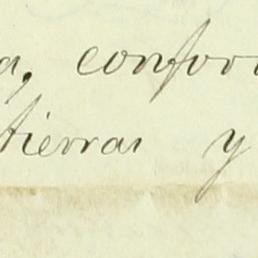 a, confor
tierras y